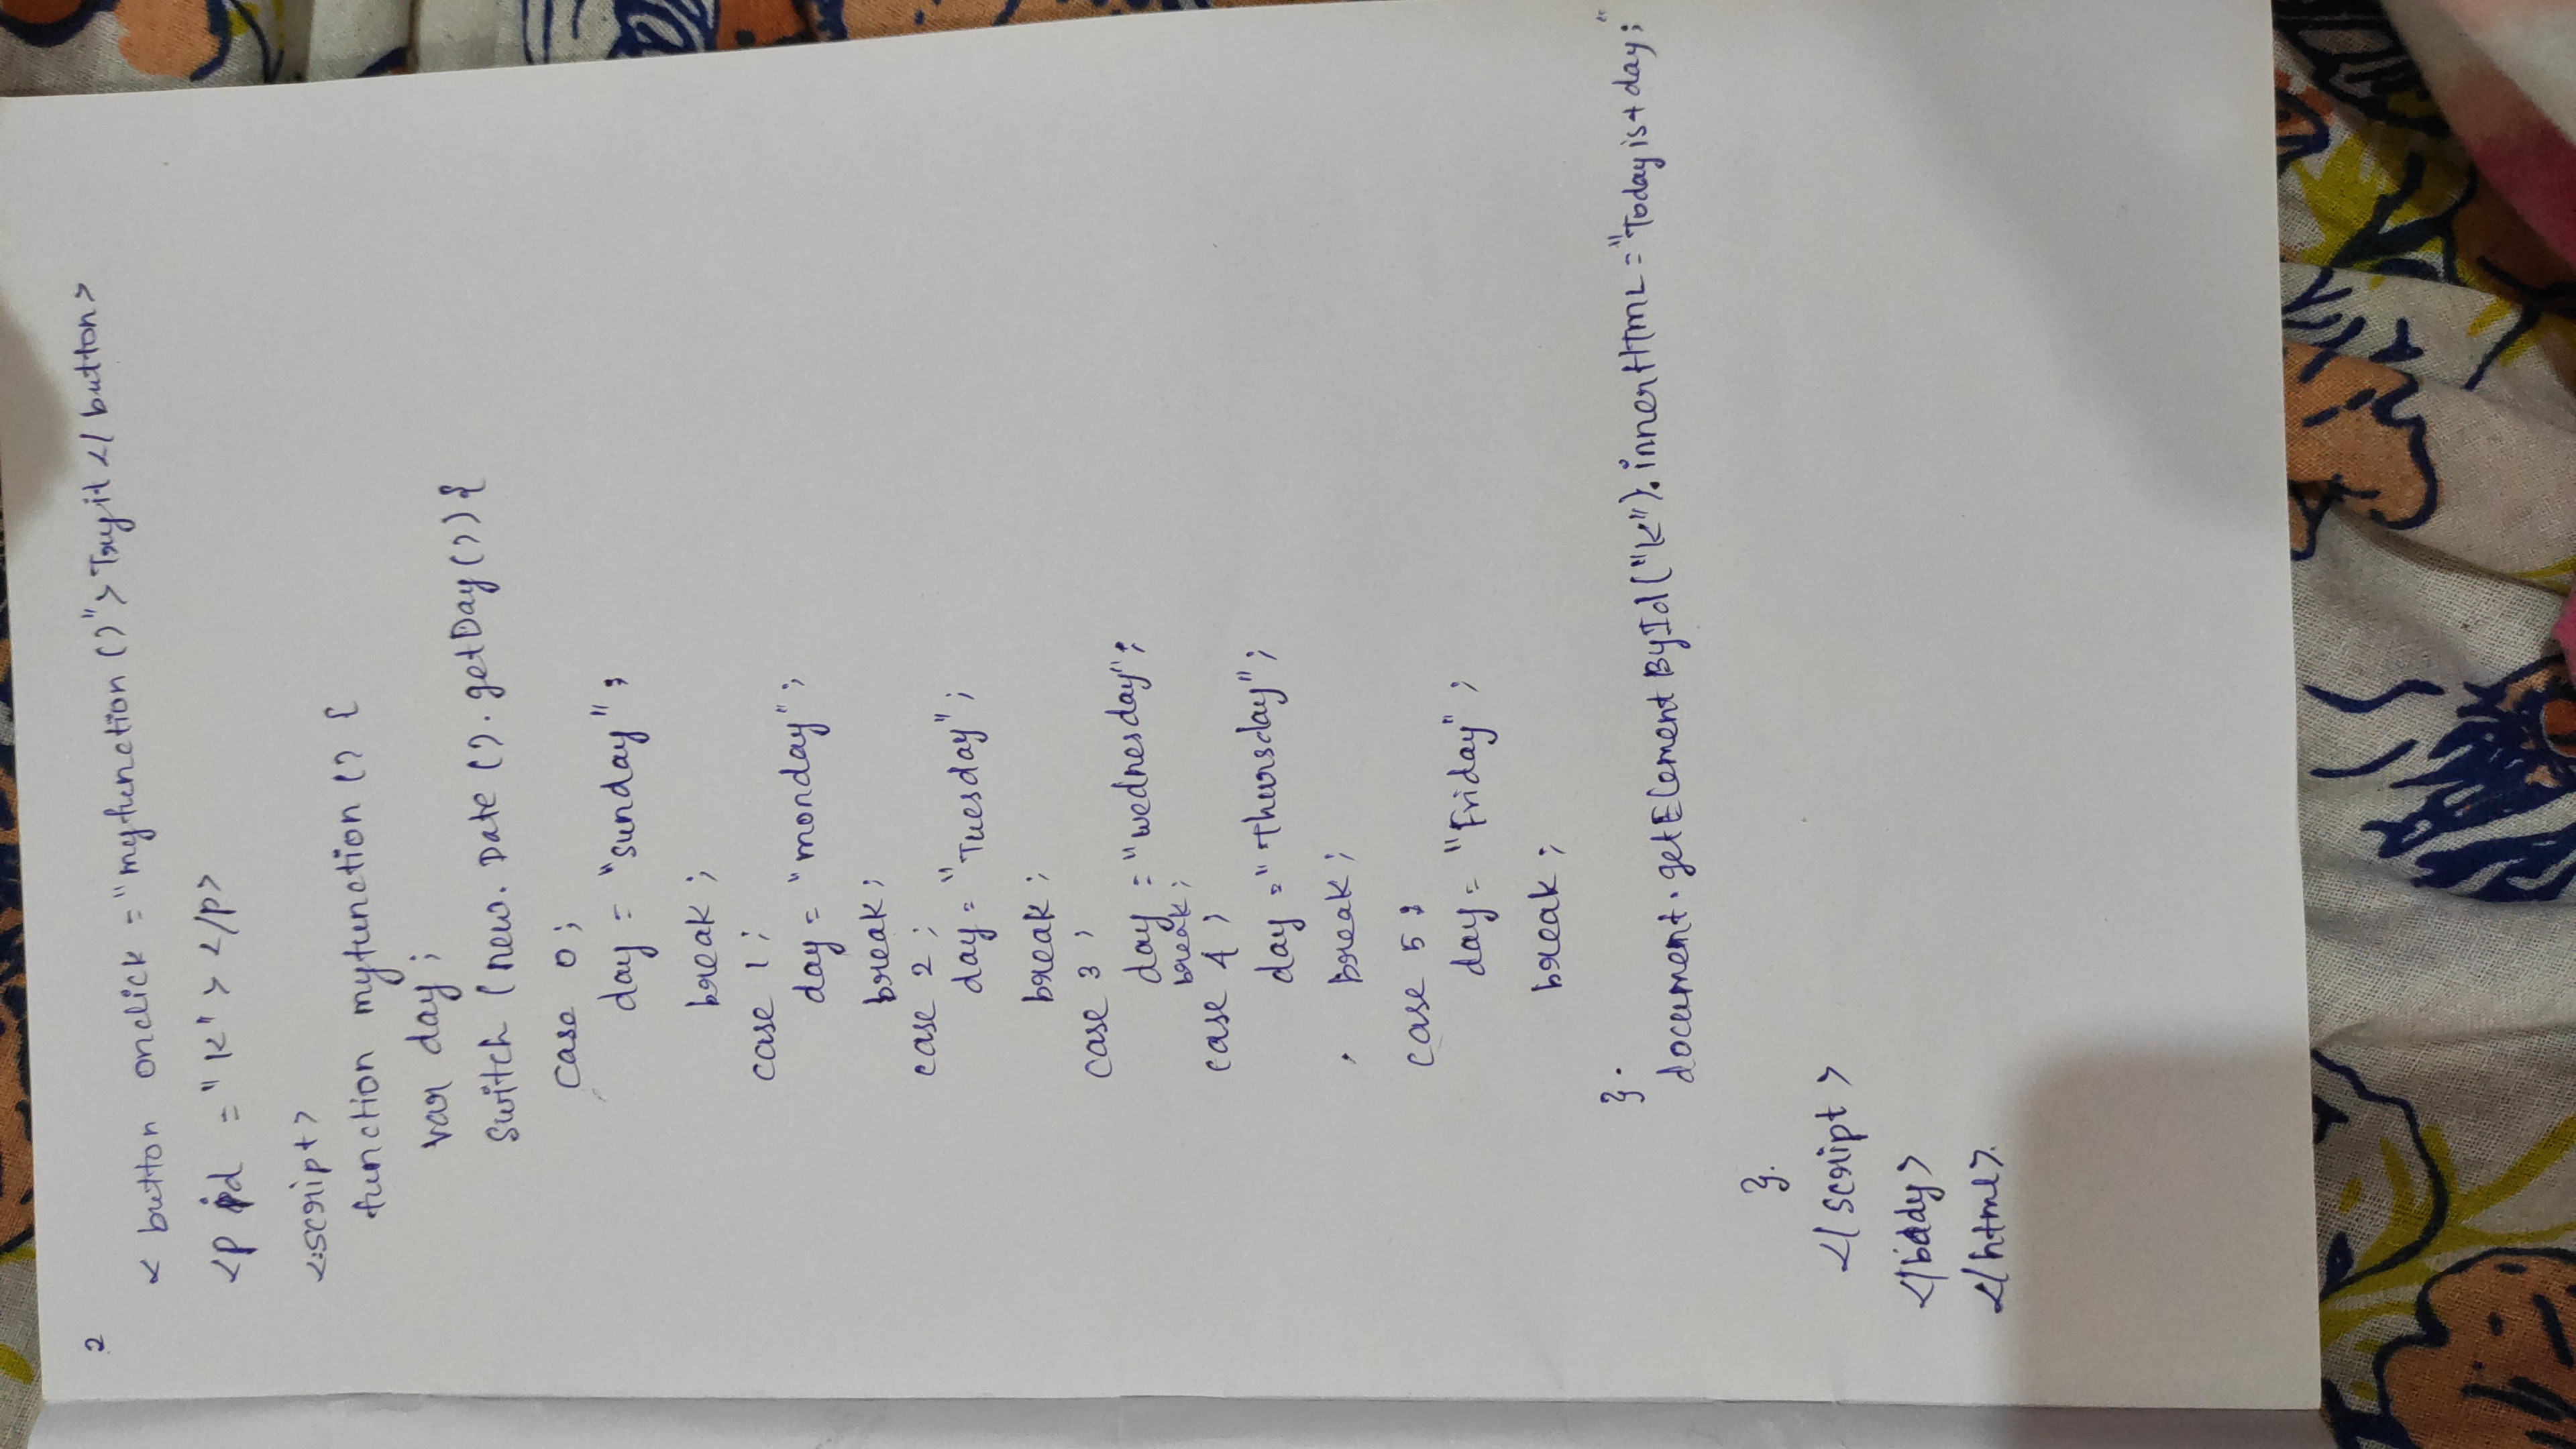 2
< button onclick = "myfunction ()"> Try it </ button>
<p id = "K" > </p>
<script>
function myfunction () {
var day ;
Switch (new. Date (). getDay ()) {
Case 0 ;
day = "sunday" ;
break ;
case 1 ;
day = "monday" ;
break ;
case 2 ;
day = "Tuesday" ;
break ;
case 3 ;
day = "wednesday" ;
break ;
case 4 ;
day = "Thursday" ;
Break ;
case 5 :
day = "Friday" ;
break ;
} .
document. getElementById ("K"). innerHTML = "Today is + day ; "
}.
</ script >
</body>
</html>.